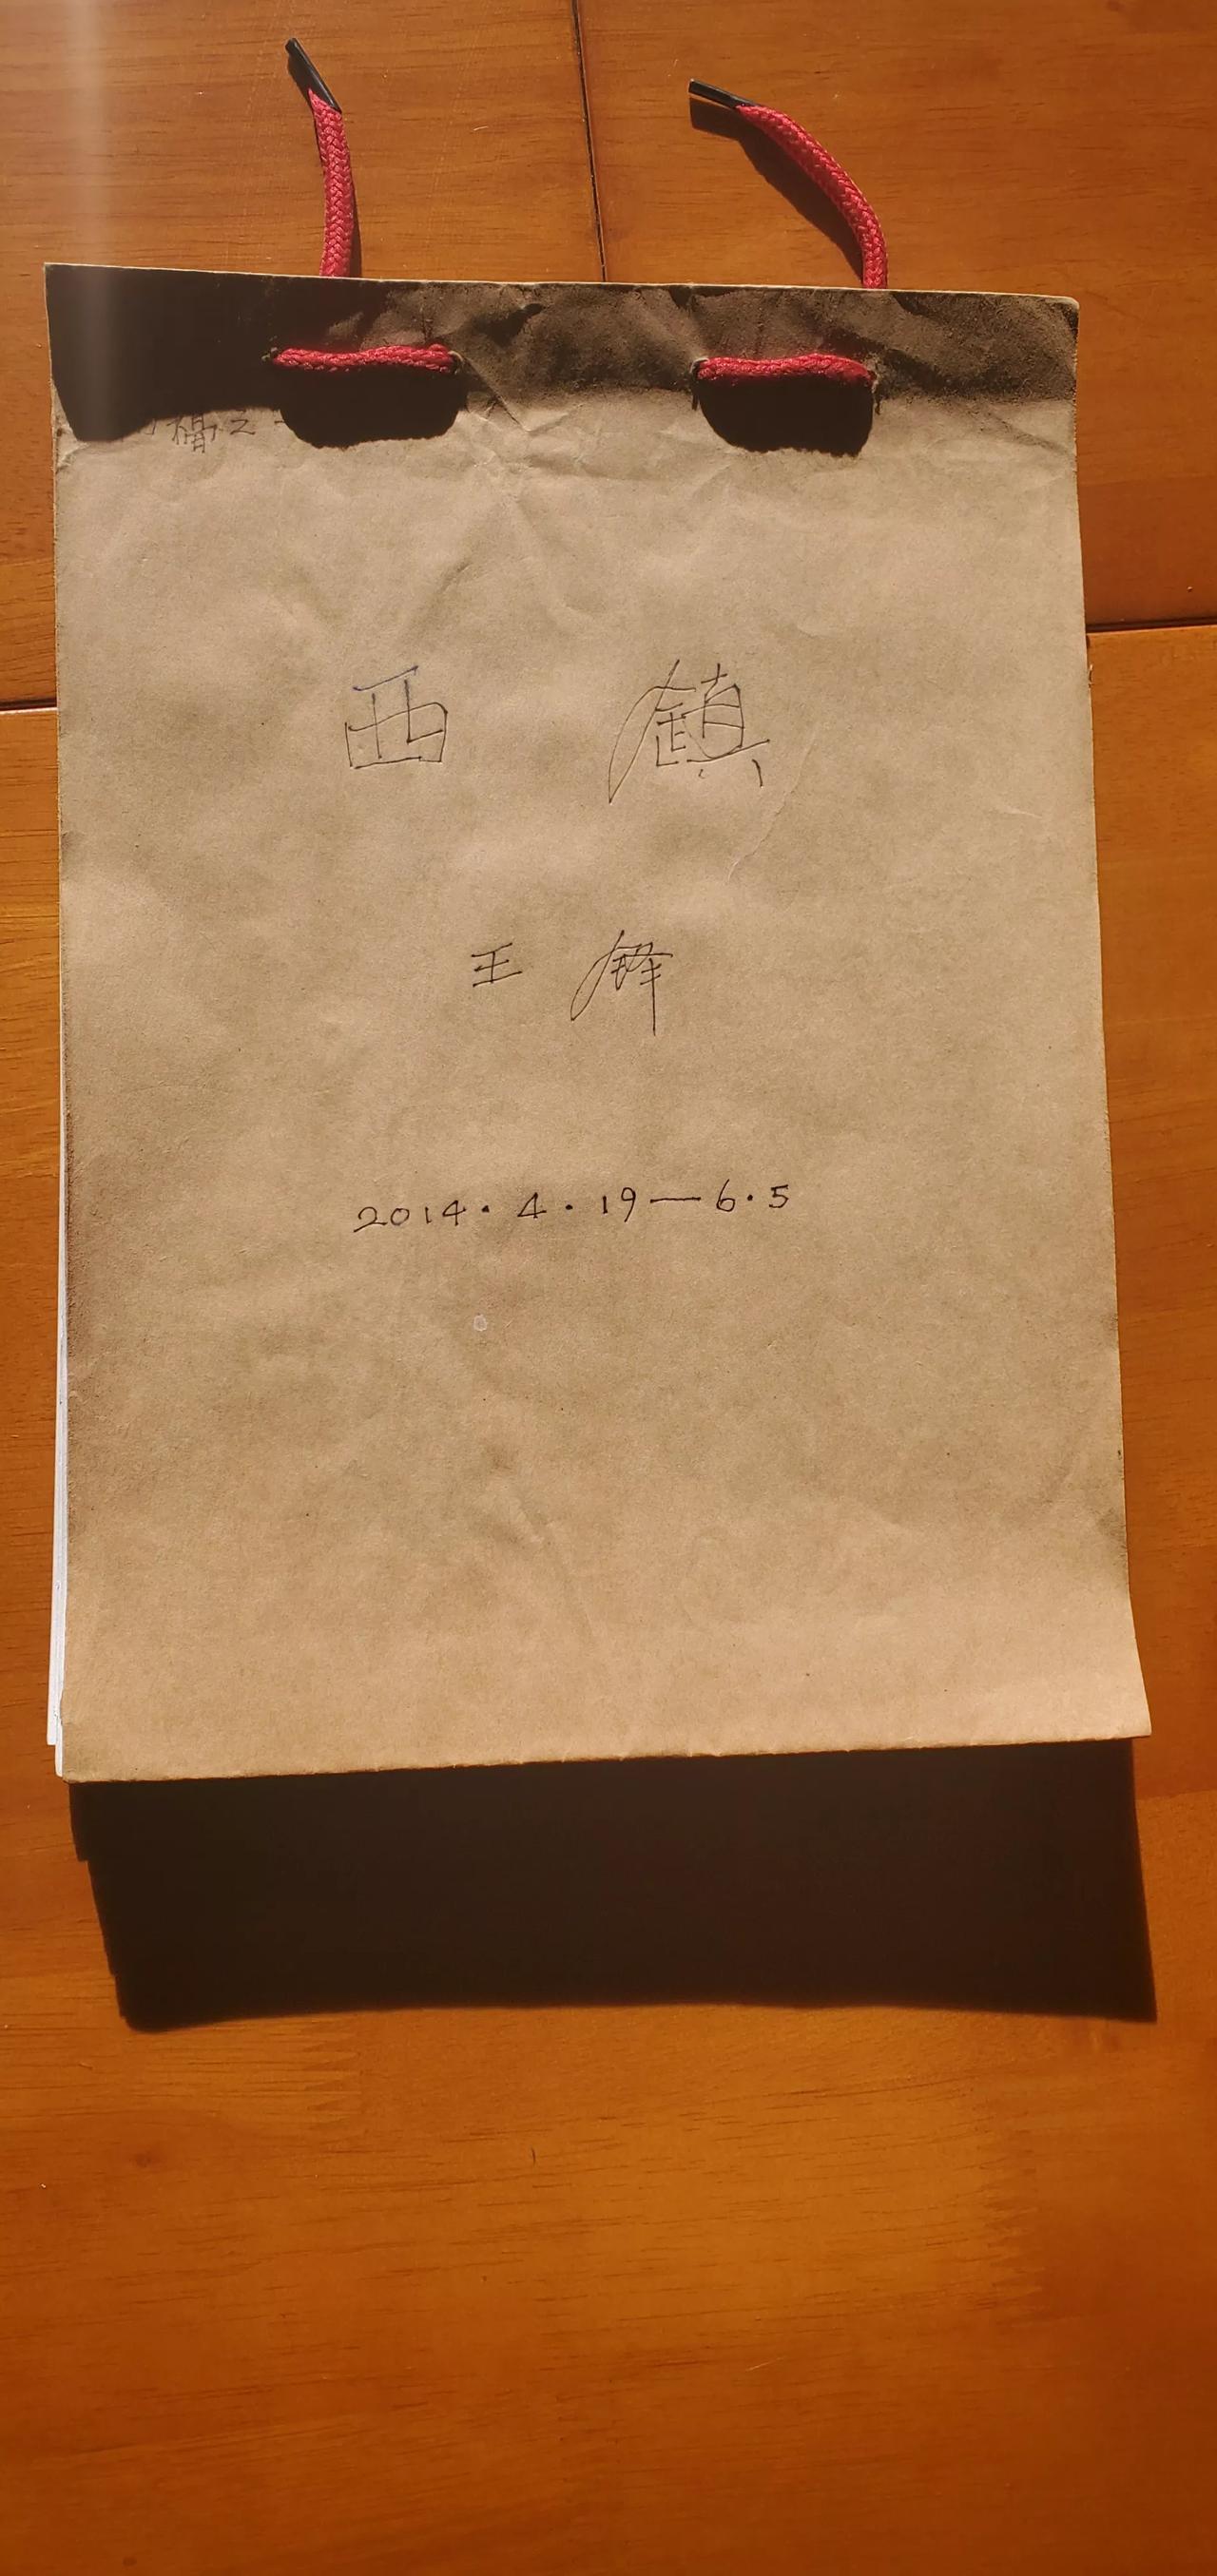 之一
西 鎮
王 鋒
2014·4·19—6·5